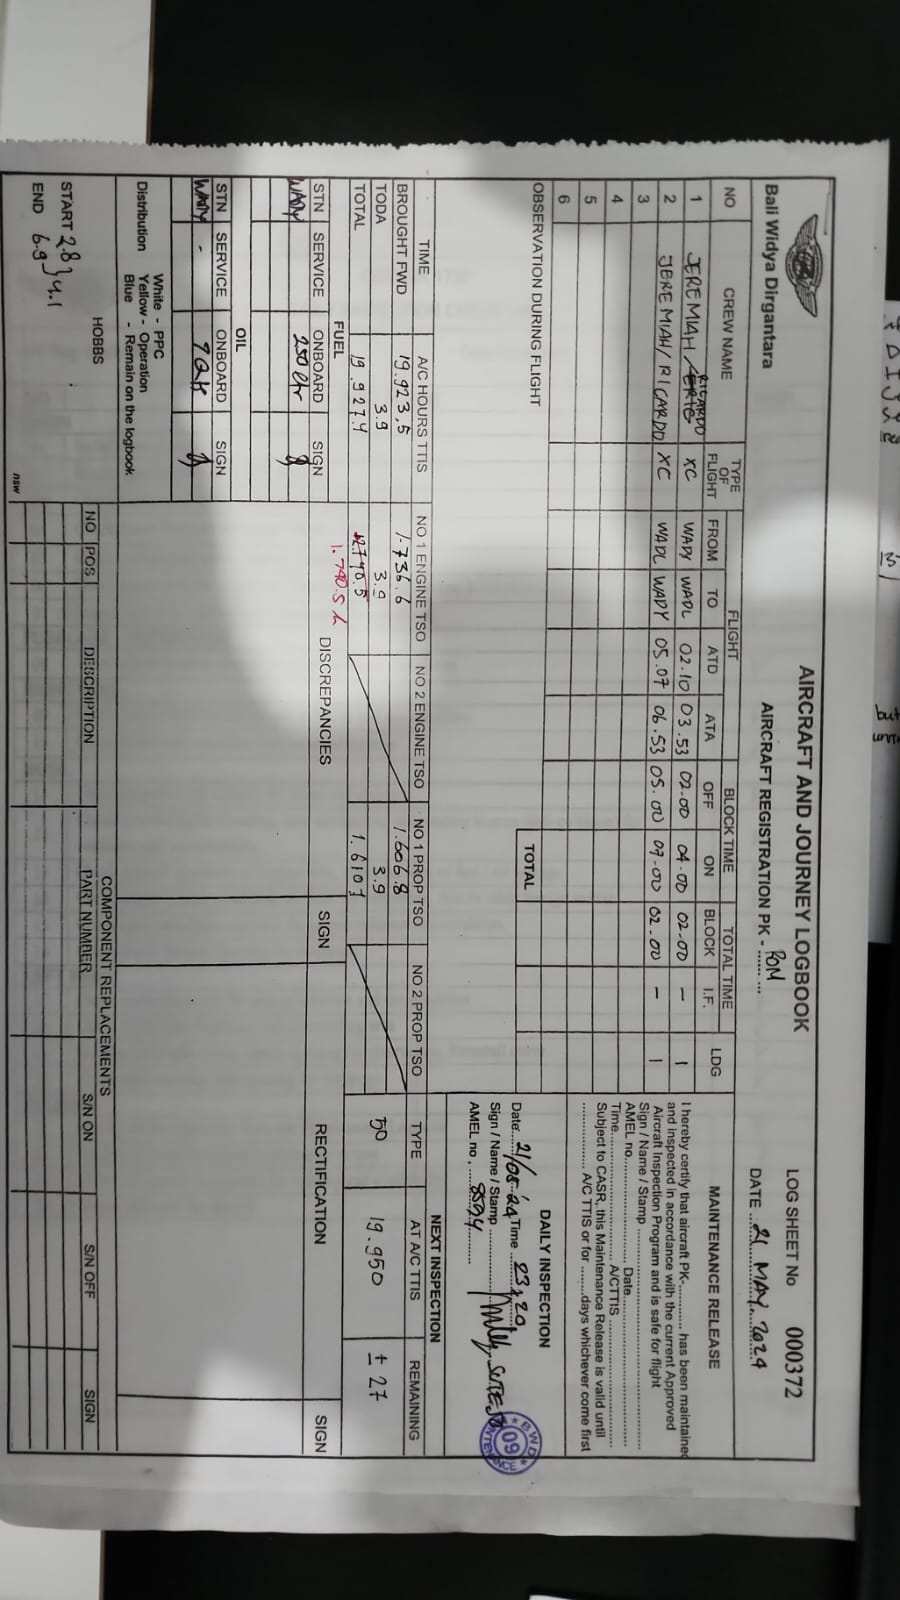 Bali Widya Dirgantara
AIRCRAFT AND JOURNEY LOGBOOK
AIRCRAFT REGISTRATION PK - ROM
LOG SHEET No 000372
DATE 21 MAY 2024
NO CREW NAME TYPE OF FLIGHT FLIGHT BLOCK TIME TOTAL TIME LDG
FROM TO ATD ATA OFF ON BLOCK I.F.
1 JEREMIAH / ERIC RICARDO XC WADY WADL 02.10 03.53 02.00 04.00 02.00 - 1
2 JEREMIAH / RICARDO XC WADL WADY 05.07 06.53 05.00 07.00 02.00 - 1
3
4
5
6
OBSERVATION DURING FLIGHT
TOTAL
MAINTENANCE RELEASE
I hereby certify that aircraft PK-.......... has been maintained
and inspected in accordance with the current Approved
Aircraft Inspection Program and is safe for flight
Sign / Name / Stamp
AMEL no. Date
Time A/CTTIS
Subject to CASR, this Maintenance Release is valid until
A/C TTIS or for ........days whichever come first
DAILY INSPECTION
Date 21/05'24 Time 23.20
Sign / Name / Stamp
AMEL no , 8594
BWD
09
TIME A/C HOURS TTIS NO 1 ENGINE TSO NO 2 ENGINE TSO NO 1 PROP TSO NO 2 PROP TSO
BROUGHT FWD 19.923,5 1.736.6 1.606.8
TODA 3.9 3.9 3.9
TOTAL 19.927.4 1.6107
1.740.5
NEXT INSPECTION
TYPE AT A/C TTIS REMAINING
50 19.950 ± 27
FUEL
STN SERVICE ONBOARD SIGN
WADY 250 ltr
OIL
STN SERVICE ONBOARD SIGN
WADY - 7Qtt
DISCREPANCIES SIGN RECTIFICATION SIGN
Distribution White - PPC
Yellow - Operation
Blue - Remain on the logbook
HOBBS
START 2.8
END 6.9
4.1
COMPONENT REPLACEMENTS
NO POS DESCRIPTION PART NUMBER S/N ON S/N OFF SIGN
nsw
but